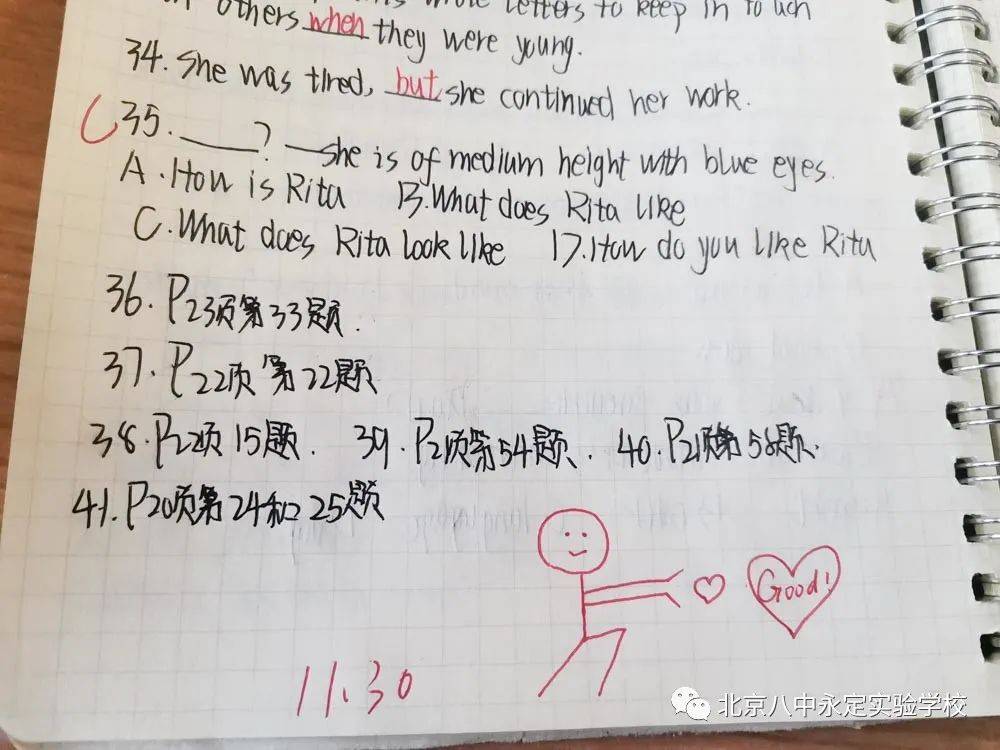 letters to keep in touch
others when they were young.
34. She was tired, but she continued her work.
C 35. ____? —she is of medium height with blue eyes.
A. How is Rita B. What does Rita like
C. What does Rita look like D. How do you like Rita
36. P23页第33题.
37. P22页第22题
38. P22页15题. 39. P21页第54题. 40. P21页第58题.
41. P20页第24和25题
Good!
11.30
北京八中永定实验学校